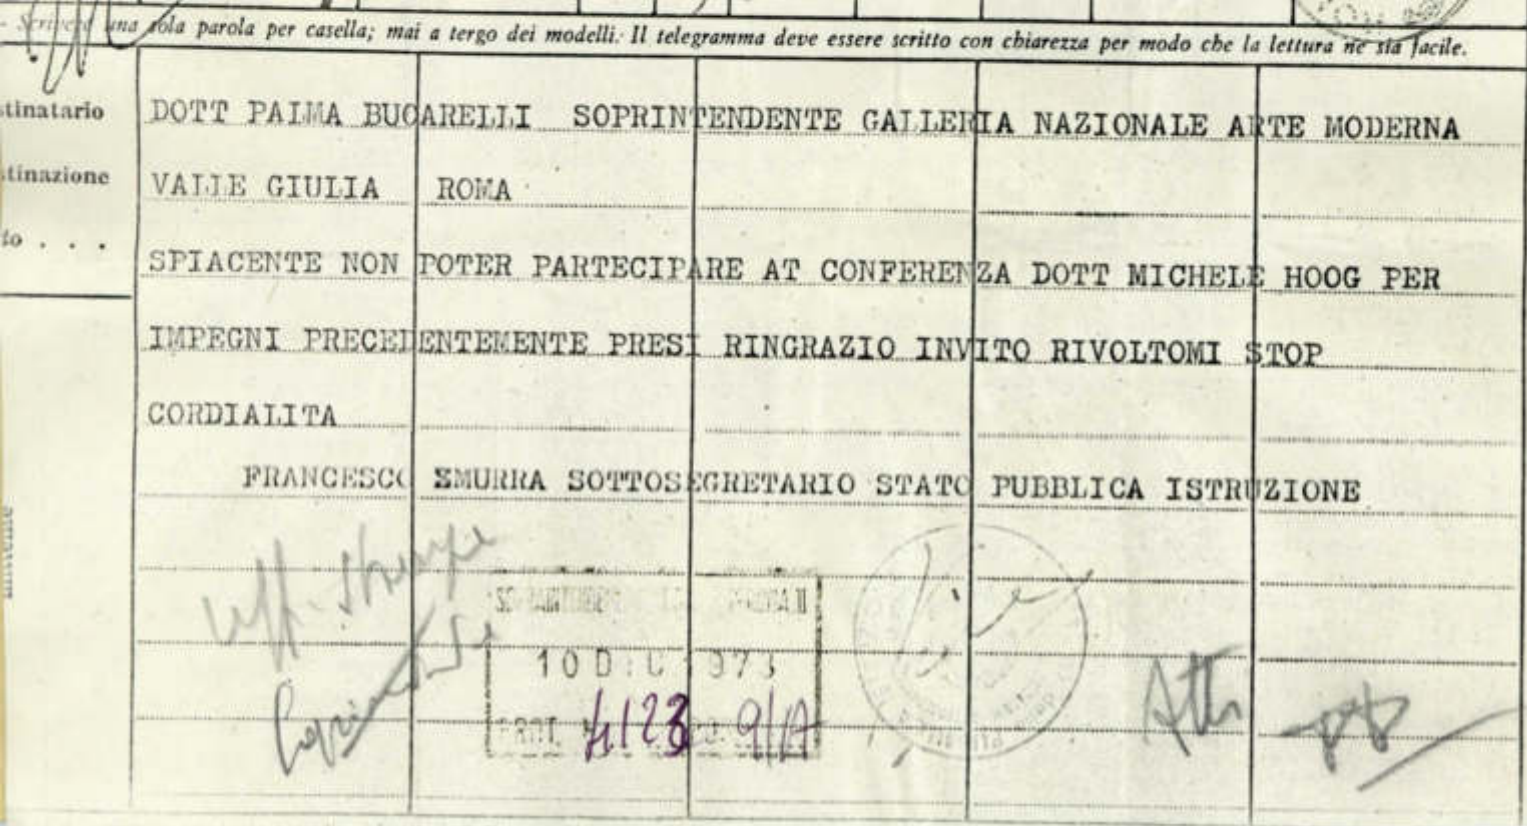 una sola parola per casella; mai a tergo dei modelli. Il telegramma deve essere scritto con chiarezza per modo che la lettura ne sia facile.
stinatario DOTT PALMA BUCARELLI SOPRINTENDENTE GALLERIA NAZIONALE ARTE MODERNA
stinazione VALLE GIULIA ROMA
to . . .
SPIACENTE NON POTER PARTECIPARE AT CONFERENZA DOTT MICHELE HOOG PER
IMPEGNI PRECEDENTEMENTE PRESI RINGRAZIO INVITO RIVOLTOMI STOP
CORDIALITA
FRANCESCO SMURRA SOTTOSEGRETARIO STATO PUBBLICA ISTRUZIONE
10 DIC 1973
PROT. 4123 9/A
Atti